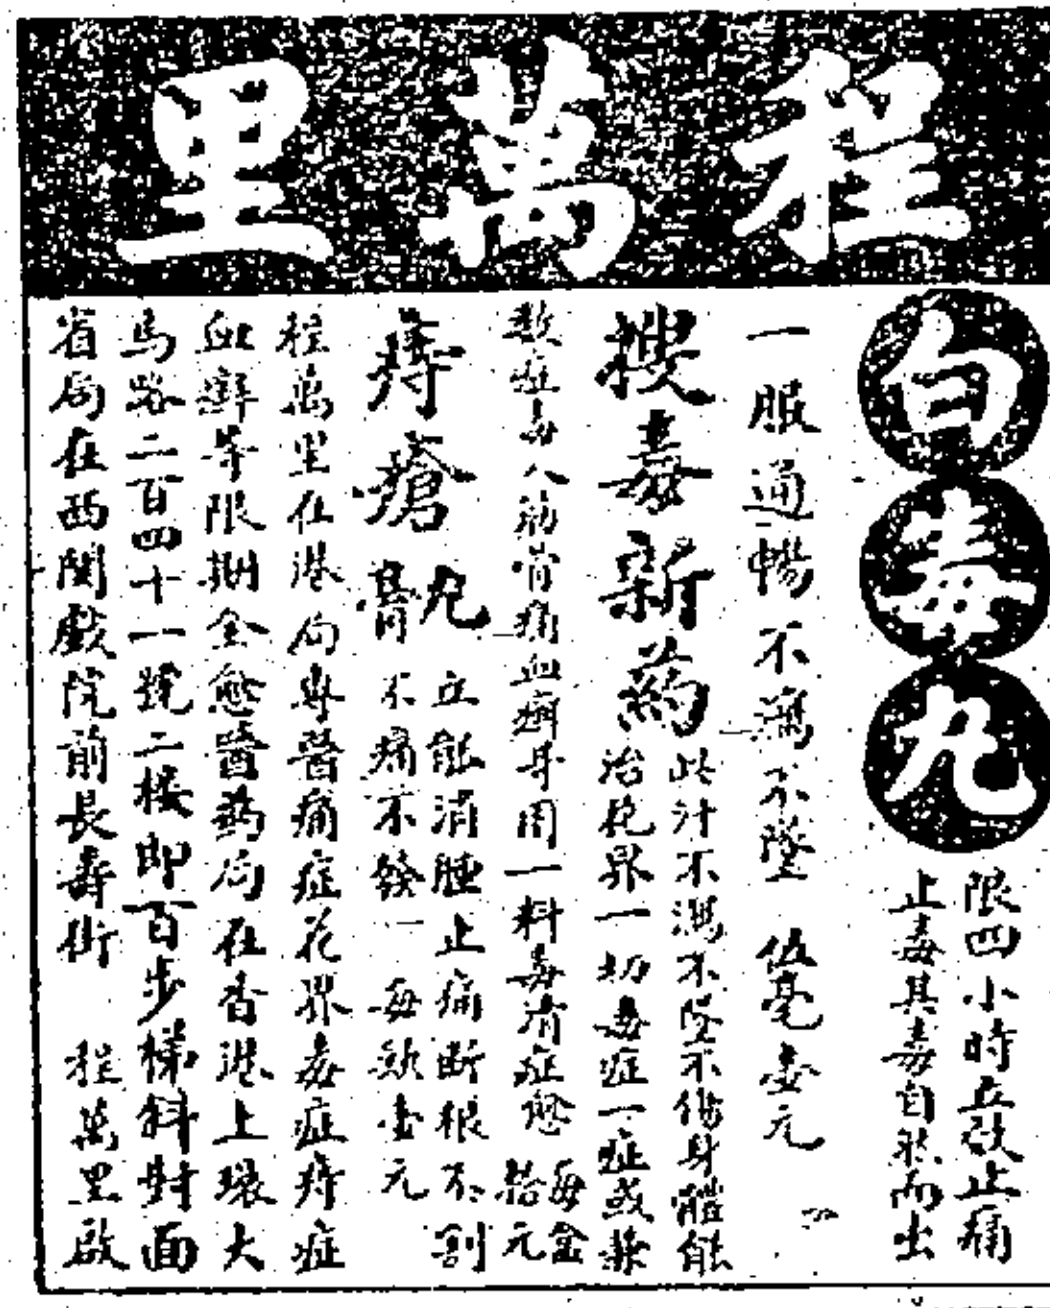 程萬里
白毒丸
限四小時立效止痛
止毒其毒自然而出
一服通暢不瀉不墜 伍毫 壹元
搜毒新葯
此汁不瀉不墜不傷身體能
治花界一切毒症一症或兼
數症毒入筋骨痛血癬等用一料毒清症愈 每盒拾元
痔瘡丸膏
立能消腫止痛斷根不割
不痛不發 每 壹元
程萬里在港局專醫痛症花界毒症痔症
血癬等限期全愈醫葯局在香港上環大
馬路二百四十一號二樓即百步梯斜對面
省局在西關戲院前長壽街 程萬里啟